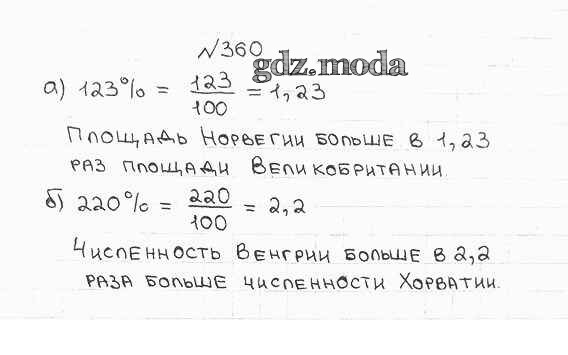 №360
gdz.moda
а) 123% = 123/100 = 1,23
Площадь Норвегии больше в 1,23
раз площади Великобритании.
б) 220% = 220/100 = 2,2
Численность Венгрии больше в 2,2
раза больше численности Хорватии.